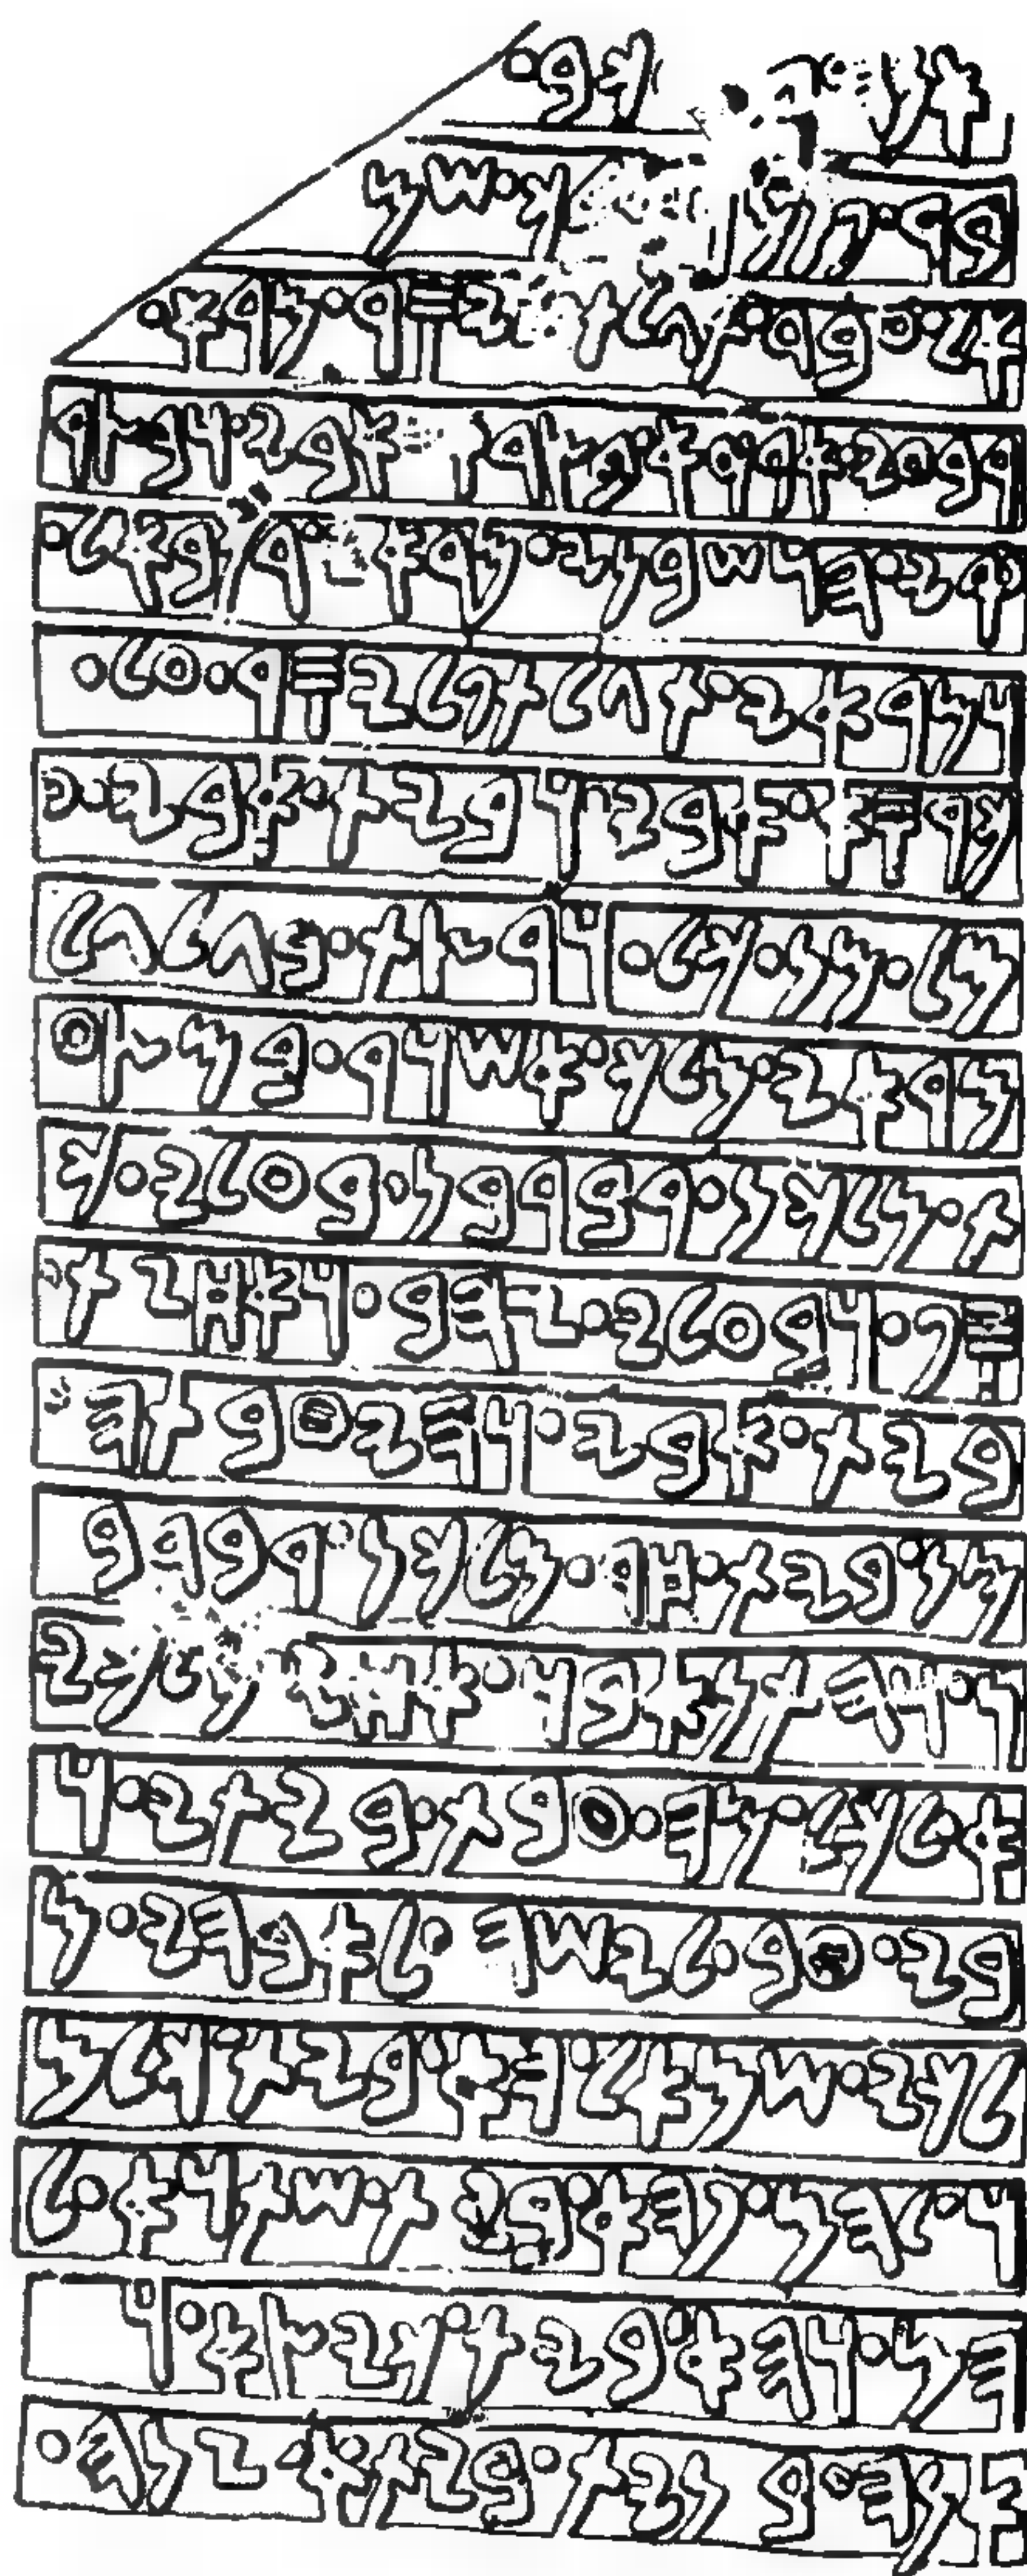 𐤀𐤍𐤄 𐤓𐤊𐤁𐤟
𐤁𐤓𐤟𐤐𐤍𐤌𐤅 𐤌𐤋𐤊𐤟𐤔𐤌
𐤀𐤋𐤟𐤏𐤁𐤃𐤟𐤕𐤂𐤋𐤕𐤐𐤋𐤉𐤎𐤓𐤟𐤌𐤓𐤀𐤟
𐤓𐤁𐤏𐤉𐤟𐤀𐤓𐤒𐤀𐤟𐤁𐤑𐤃𐤒𐤟𐤀𐤁𐤉𐤟𐤅𐤁𐤑𐤃
𐤒𐤉𐤟𐤄𐤅𐤔𐤁𐤍𐤉𐤟𐤌𐤓𐤀𐤉𐤟𐤓𐤊𐤁𐤀𐤋𐤟
𐤅𐤌𐤓𐤀𐤉𐤟𐤕𐤂𐤋𐤕𐤐𐤋𐤉𐤎𐤓𐤟𐤏𐤋𐤟
𐤊𐤓𐤎𐤀𐤟𐤀𐤁𐤉𐤟𐤅𐤁𐤉𐤕𐤟𐤀𐤁𐤉𐤟𐤏
𐤌𐤋𐤟𐤌𐤍𐤟𐤊𐤋𐤟𐤅𐤓𐤑𐤕𐤟𐤁𐤂𐤋𐤂𐤋
𐤌𐤓𐤀𐤉𐤟𐤌𐤋𐤊𐤟𐤀𐤔𐤅𐤓𐤟𐤁𐤌𐤑𐤏
𐤕𐤟𐤌𐤋𐤊𐤍𐤟𐤓𐤁𐤓𐤁𐤍𐤟𐤁𐤏𐤋𐤉𐤟𐤊
𐤎𐤐𐤟𐤅𐤁𐤏𐤋𐤉𐤟𐤆𐤄𐤁𐤟𐤅𐤀𐤇𐤆𐤕𐤟
𐤁𐤉𐤕𐤟𐤀𐤁𐤉𐤟𐤅𐤄𐤉𐤈𐤁𐤕𐤄𐤟
𐤌𐤍𐤟𐤁𐤉𐤕𐤟𐤇𐤃𐤟𐤌𐤋𐤊𐤍𐤟𐤓𐤁𐤓𐤁
𐤍𐤟𐤅𐤄𐤕𐤍𐤀𐤁𐤅𐤟𐤀𐤇𐤉𐤟𐤌𐤋𐤊𐤉
𐤀𐤟𐤋𐤊𐤋𐤟𐤌𐤄𐤟𐤈𐤁𐤕𐤟𐤁𐤉𐤕𐤉𐤟𐤅
𐤁𐤉𐤟𐤈𐤁𐤟𐤋𐤉𐤔𐤄𐤟𐤋𐤀𐤁𐤄𐤉𐤟𐤌
𐤋𐤊𐤉𐤟𐤔𐤌𐤀𐤋𐤟𐤄𐤀𐤟𐤁𐤉𐤕𐤟𐤊𐤋𐤌
𐤅𐤟𐤋𐤄𐤌𐤟𐤐𐤄𐤀𐤟𐤁𐤉𐤕𐤟𐤔𐤕𐤅𐤀𐤟𐤋
𐤄𐤌𐤟𐤅𐤄𐤀𐤟𐤁𐤉𐤕𐤟𐤊𐤉𐤑𐤀𐤟𐤅
𐤀𐤍𐤄𐤟𐤁𐤍𐤉𐤕𐤟𐤁𐤉𐤕𐤀𐤟𐤆𐤍𐤄𐤟